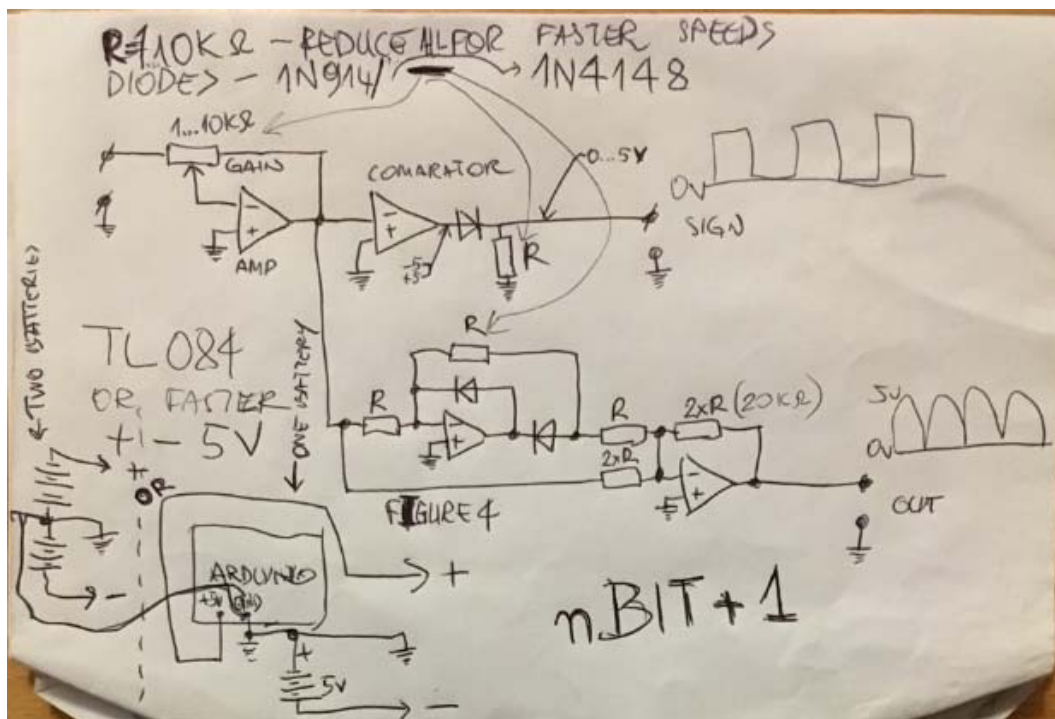 R=10KΩ - REDUCE ALL FOR FASTER SPEEDS
DIODES - 1N914/ 1N4148
1...10KΩ
GAIN
COMARATOR
0...5V
0V
SIGN
AMP
-5
+5
R
TWO BATTERIES
TL084
OR FASTER
+/- 5V
ONE BATTERY
R
R
R
2xR (20KΩ)
2xR
5V
0V
OUT
FIGURE 4
+
OR
-
ARDUINO
+5V GND
+
5V
+
-
nBIT+1